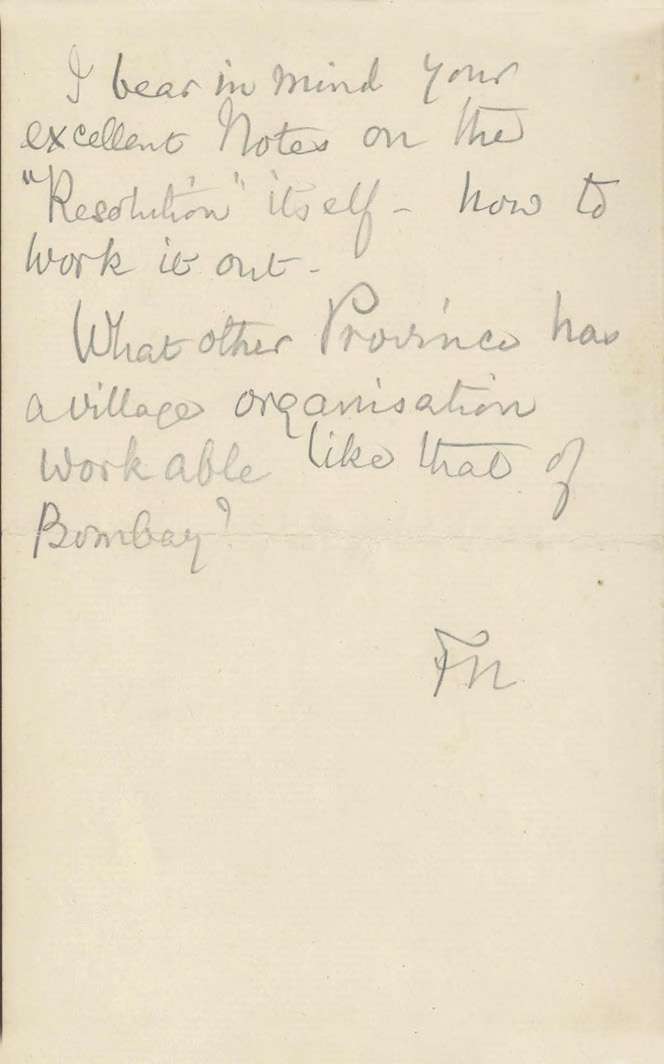 I bear in mind your
excellent Notes on the
"Resolution" itself - how to
work it out -
What other Province has
a village organisation
workable like that of
Bombay?
FN